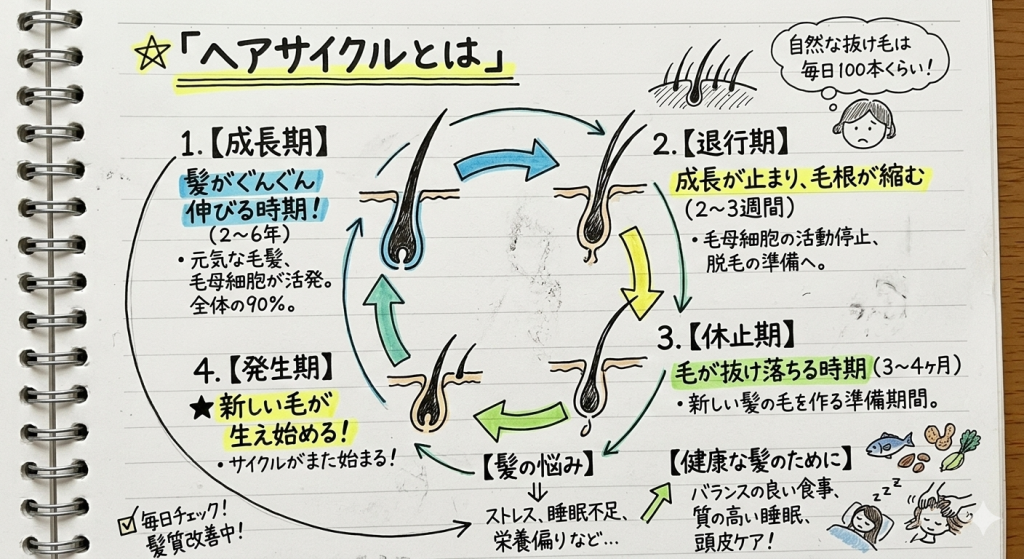 「ヘアサイクルとは」
自然な抜け毛は
毎日100本くらい!
1.【成長期】
髪がぐんぐん
伸びる時期!
(2〜6年)
・元気な毛髪、
毛母細胞が活発。
全体の90%。
2.【退行期】
成長が止まり、毛根が縮む
(2〜3週間)
・毛母細胞の活動停止、
脱毛の準備へ。
3.【休止期】
毛が抜け落ちる時期(3〜4ヶ月)
・新しい髪の毛を作る準備期間。
4.【発生期】
★新しい毛が
生え始める!
・サイクルがまた始まる!
【髪の悩み】
ストレス、睡眠不足、
栄養偏りなど…
【健康な髪のために】
バランスの良い食事、
質の高い睡眠、
頭皮ケア!
zzz
毎日チェック!
髪質改善中!